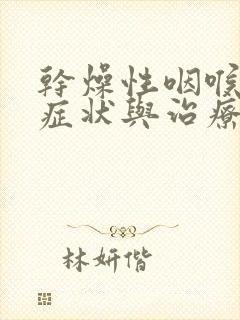 幹燥性咽喉
症狀與治療
林妍偕